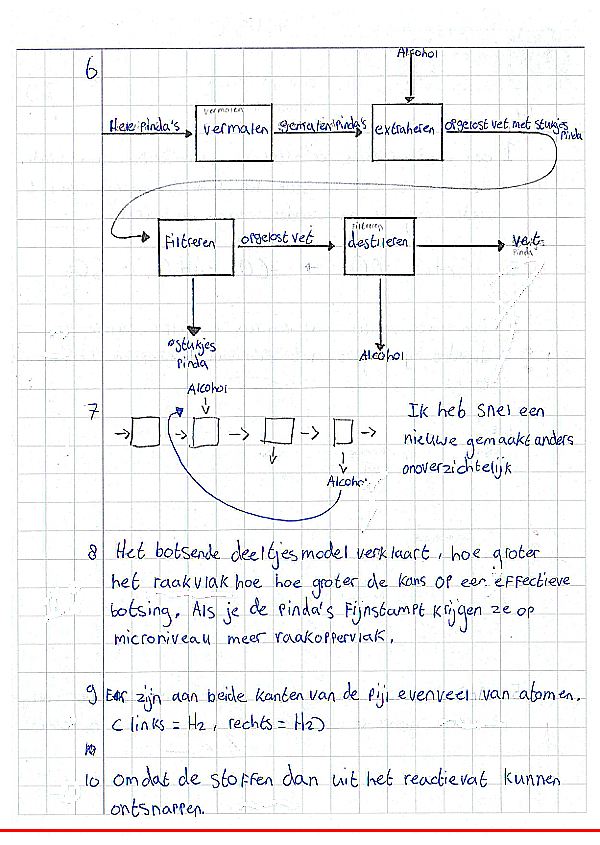 6
Alcohol
Hele pinda's
vermalen
vermalen
gemalen pinda's
extraheren
opgelost vet met stukjes
Pinda
Filtreren
opgelost vet
Filtreren
destileren
vet
Pinda
stukjes
Pinda
Alcohol
7
Alcohol
Alcohol
Ik heb snel een
nieuwe gemaakt anders
onoverzichtelijk
8 Het botsende deeltjesmodel verklaart, hoe groter
het raakvlak hoe hoe groter de kans op een effectieve
botsing. Als je de pinda's Fijnstampt krijgen ze op
microniveau meer raakoppervlak.
9 Er zijn aan beide kanten van de Pijl evenveel van atomen.
( links = H2, rechts = H2)
10 omdat de stoffen dan uit het reactievat kunnen
ontsnappen.